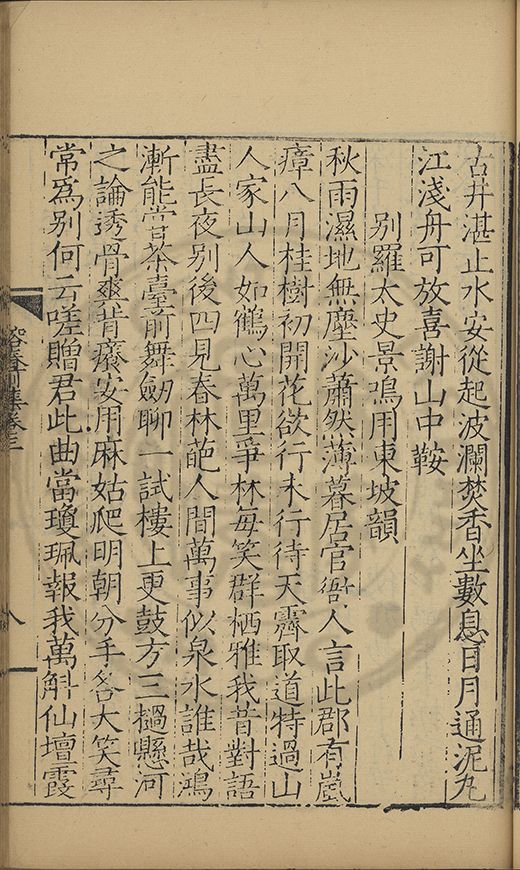 古井湛止水安從起波瀾焚香坐數息日月通泥丸
江淺舟可放喜謝山中鞍
別羅太史景鳴用東坡韻
秋雨濕地無塵沙蕭然薄暮居官衙人言此郡有嵐
瘴八月桂樹初開花欲行未行待天霽取道特過山
人家山人如鶴心萬里爭林每笑群栖雅我昔對語
盡長夜別後四見春林葩人間萬事似泉水誰哉鴻
漸能嘗茶臺前舞劒聊一試樓上更鼓方三撾懸河
之論透骨爽背癢安用麻姑爬明朝分手各大笑尋
常爲別何云嗟贈君此曲當瓊珮報我萬斛仙壇霞
卷三
八